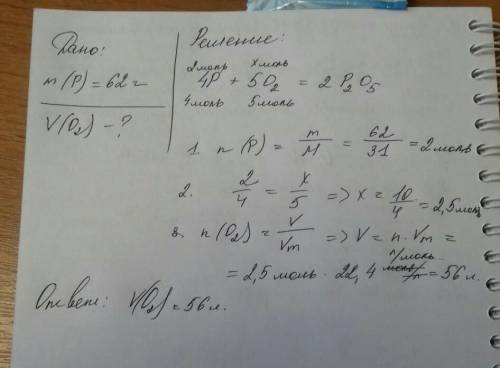 Дано:
m(P) = 62 г
V(O₂) - ?
Решение:
2 моль x моль
4P + 5O₂ = 2P₂O₅
4 моль 5 моль
1. n(P) = m/M = 62/31 = 2 моль
2. 2/4 = x/5 => x = 10/4 = 2,5 моль
3. n(O₂) = V/Vm => V = n · Vm =
= 2,5 моль · 22,4 л/моль = 56 л.
Ответ: V(O₂) = 56 л.